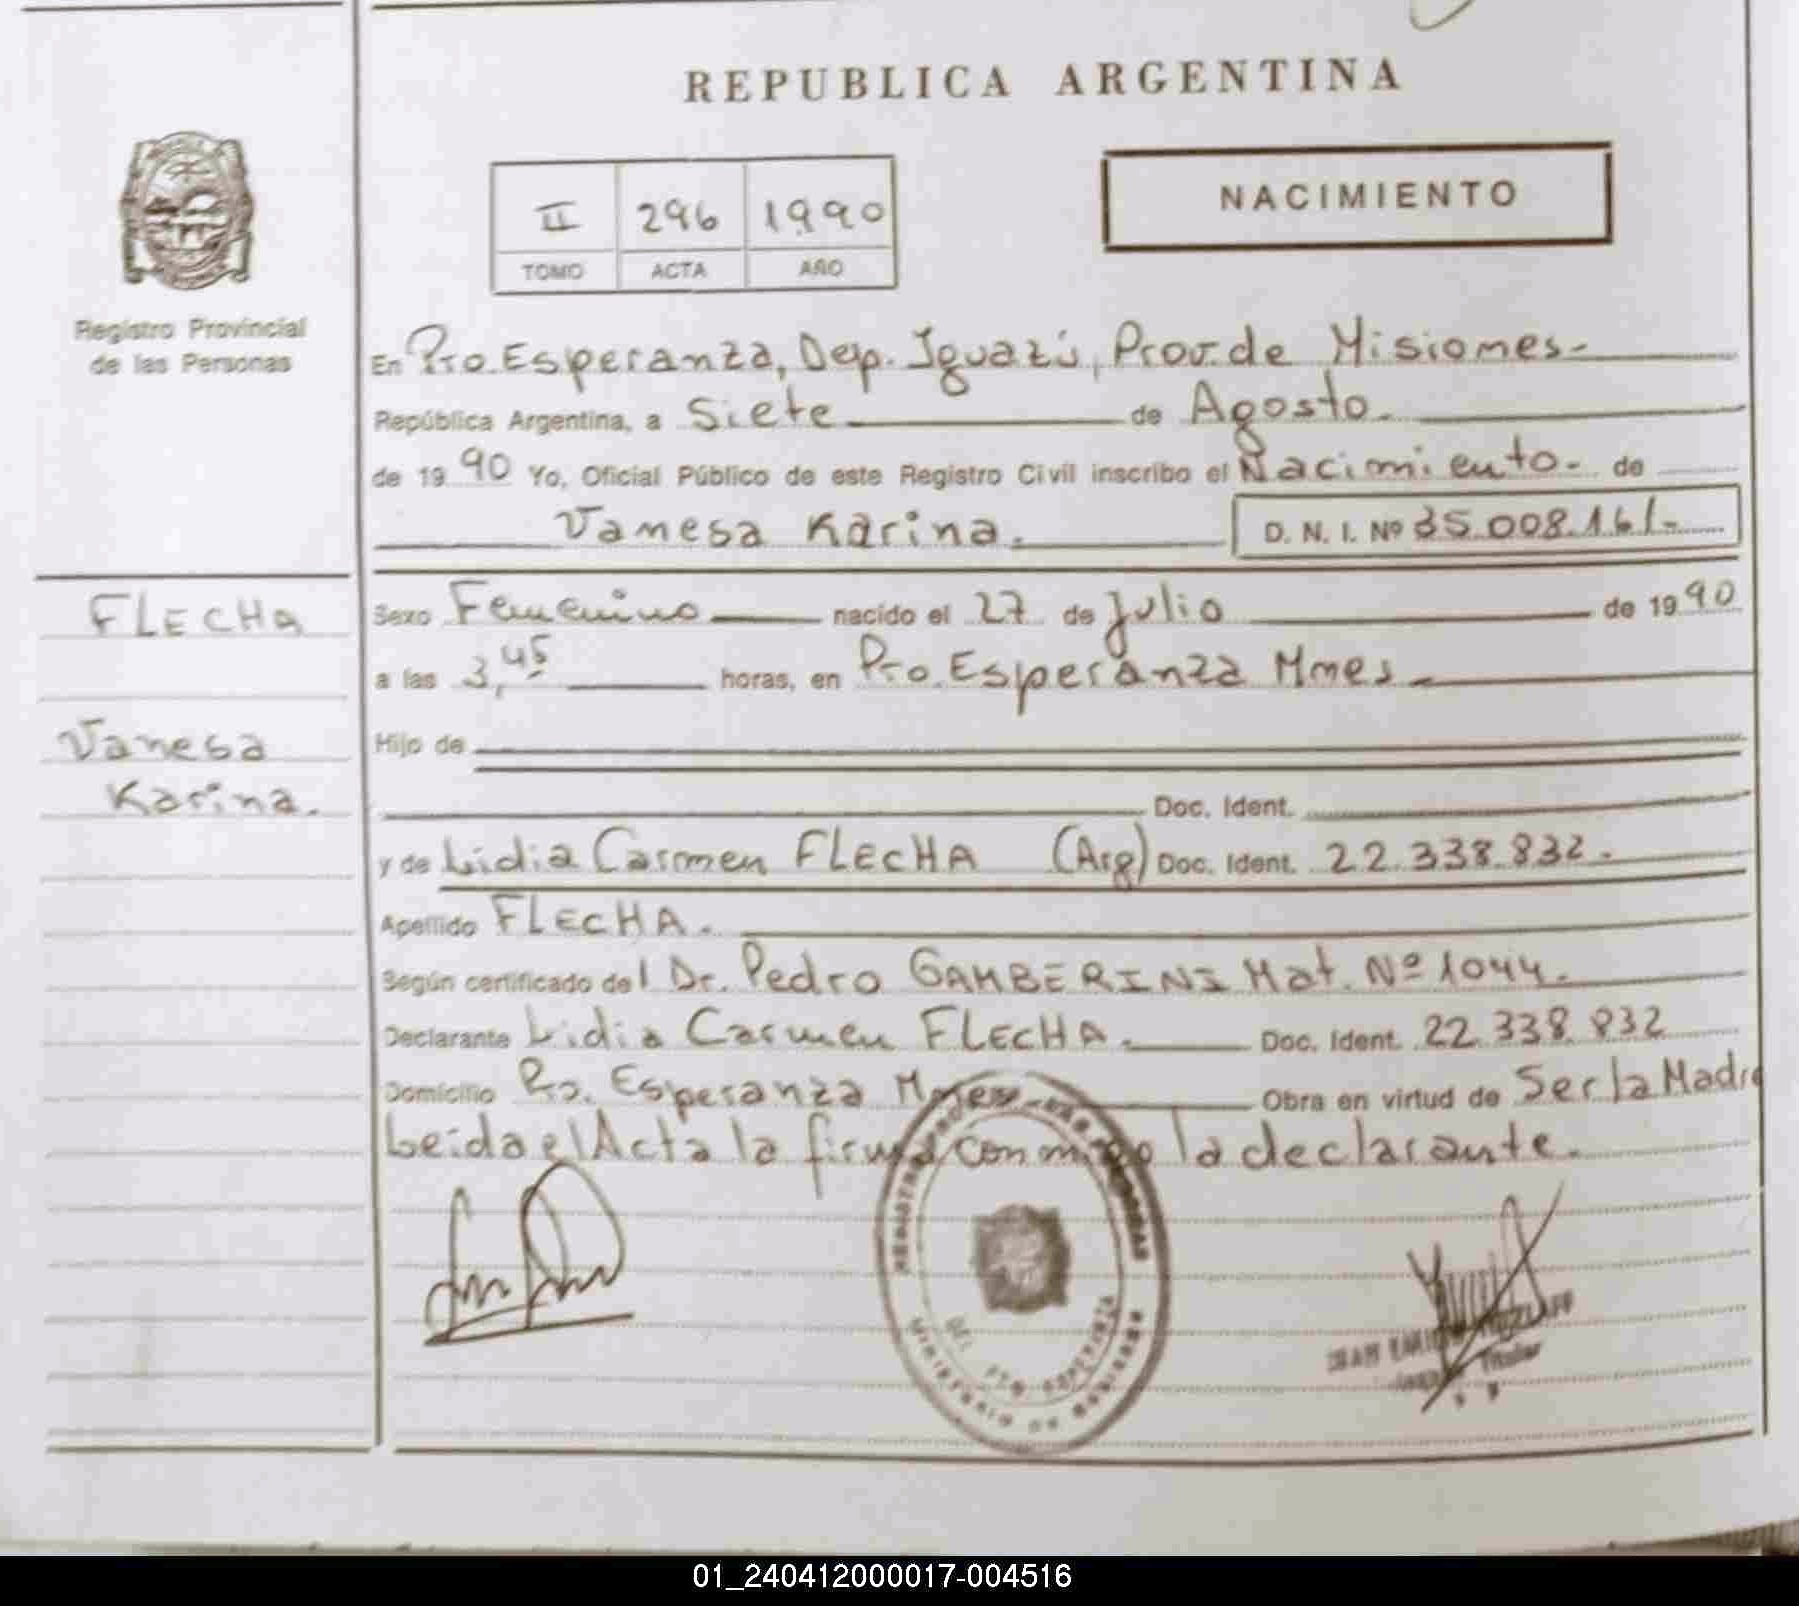 REPUBLICA ARGENTINA
II 296 1990
TOMO ACTA AÑO
NACIMIENTO
Registro Provincial
de las Personas
En Pto. Esperanza, Dep. Iguazú, Prov. de Misiones-
República Argentina, a Siete de Agosto.
de 1990 Yo, Oficial Público de este Registro Civil inscribo el Nacimiento- de
Vanesa Karina.
D. N. I. Nº 35.008.161-
FLECHA
Vanesa
Karina.
Sexo Femenino nacido el 27 de Julio de 1990
a las 3,45 horas, en Pto. Esperanza Mnes
Hijo de
Doc. Ident.
y de Lidia Carmen FLECHA (Arg) Doc. Ident. 22.338.832.
Apellido FLECHA.
Según certificado del Dr. Pedro GAMBERINI Mat. Nº 1044.
Declarante Lidia Carmen FLECHA. Doc. Ident. 22.338.832
Domicilio Pto. Esperanza Mnes Obra en virtud de Ser la Madre
Leida el Acta la firma conmigo la declarante.
MINISTERIO DE GOBIERNO
Titular
01_240412000017-004516